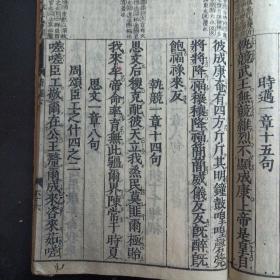 時邁一章十五句
執競武王無競維烈不顯成康上帝是皇自
彼成康奄有四方斤斤其明鐘鼓喤喤磬筦
將將降福穰穰降福簡簡威儀反反既醉既
飽福祿來反
執競一章十四句
思文后稷克配彼天立我烝民莫匪爾極貽
我來牟帝命率育無此疆爾界陳常于時夏
思文一章八句
周頌臣工之什四之二
嗟嗟臣工敬爾在公王釐爾成來咨來茹嗟